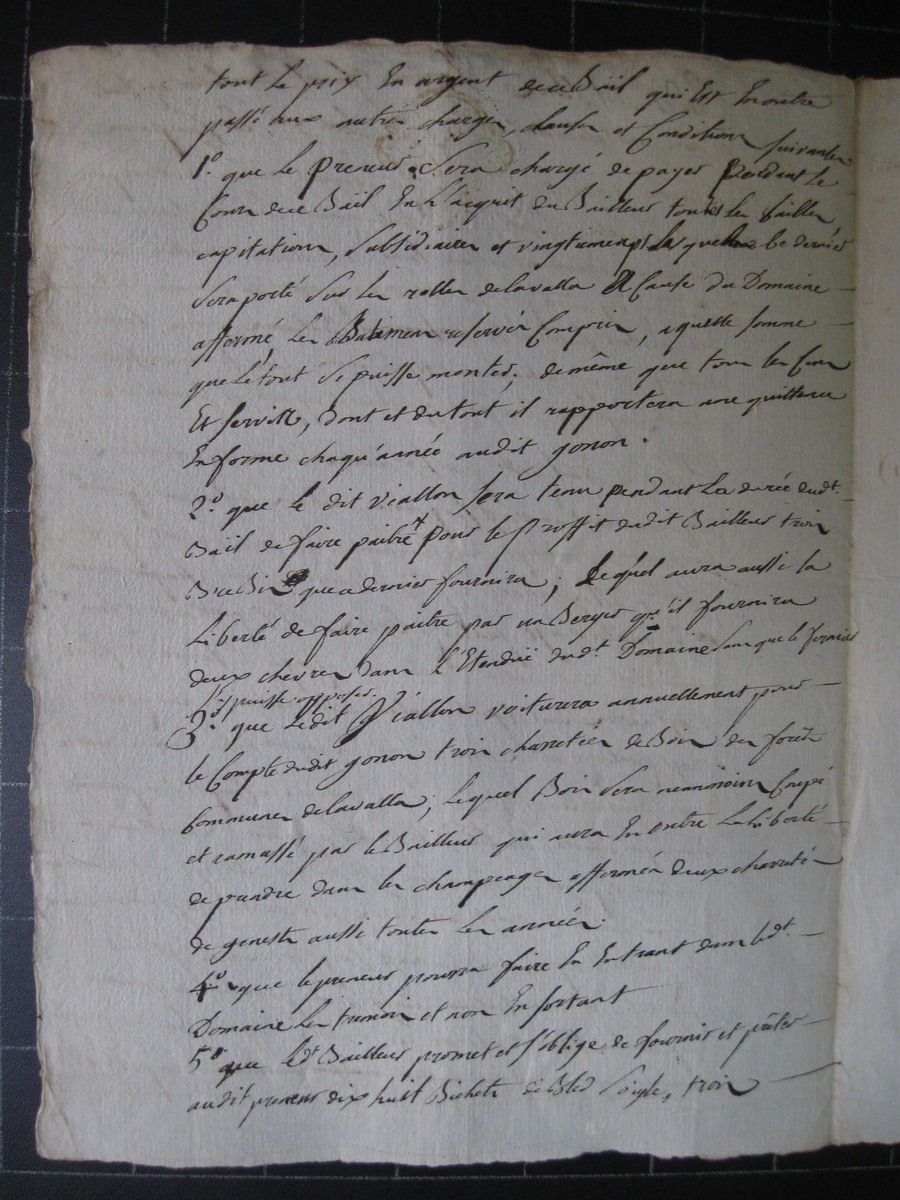 tout le prix En argent de ce Bail qui Est En outre
passé aux autres charges, clauses et Conditions suivantes
1º. que le preneur Sera chargé de payer Pendant le
Cours de ce Bail En L'acquit du Bailleur toutes les tailles
capitations, subsidiaires et vingtiemes ce dernier
Sera porté Sur les rolles de lavalla A Cause du Domaine
affermé, Les Batimens reservés Compris, a quelle somme
que Le tout Se puisse monter; de même que tous les Cens
Et servis, Dont et du tout il rapportera une quittance
En forme chaqu'année audit gonon.
2º. que le dit viallon sera tenu pendant La durée dudt.
Bail de faire paitre pour le Proffit dudit Bailleur trois
Brebis que ce dernier fournira; Lequel aura aussi la
Liberté de faire paitre par un Berger qu'il fournira
deux chevres Dans L'Etenduë dudt. Domaine Sans que le fermier
s'y puisse opposer.
3º. que Ledit Viallon voiturera annuellement pour
le Compte dudit gonon trois charretées de Bois des forêts
Communes de lavalla; Lequel Bois Sera neanmoins Coupé
et ramassé par le Bailleur qui aura En outre La Liberté
de prendre dans les champeages affermés deux charretées
de genests aussi toutes les années.
4º. que le preneur pourra faire En Entrant dans ledt.
Domaine Les tremois et non En sortant
5º. que Ledt. Bailleur promet et s'oblige de fournir et prêter
audit preneur dix huit Bichets de Bled Soigle, trois